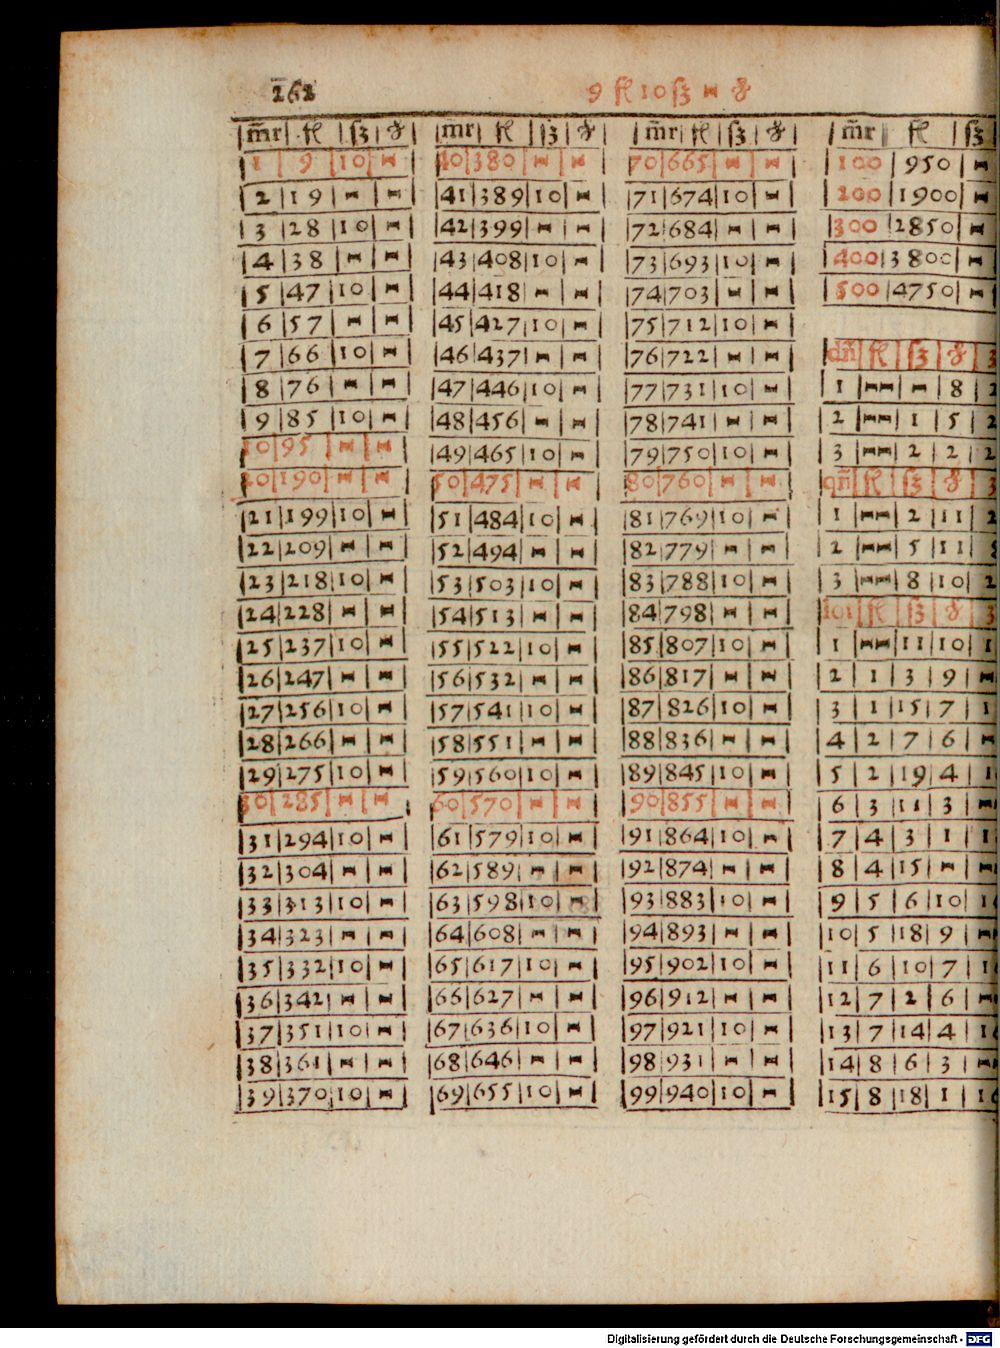 262
9 fl 10 ſʒ – ₰
m̃r fl ſʒ ₰
1 9 10 –
2 19 – –
3 28 10 –
4 38 – –
5 47 10 –
6 57 – –
7 66 10 –
8 76 – –
9 85 10 –
10 95 – –
20 190 – –
21 199 10 –
22 209 – –
23 218 10 –
24 228 – –
25 237 10 –
26 247 – –
27 256 10 –
28 266 – –
29 275 10 –
30 285 – –
31 294 10 –
32 304 – –
33 313 10 –
34 323 – –
35 332 10 –
36 342 – –
37 351 10 –
38 361 – –
39 370 10 –
m̃r fl ſʒ ₰
40 380 – –
41 389 10 –
42 399 – –
43 408 10 –
44 418 – –
45 427 10 –
46 437 – –
47 446 10 –
48 456 – –
49 465 10 –
50 475 – –
51 484 10 –
52 494 – –
53 503 10 –
54 513 – –
55 522 10 –
56 532 – –
57 541 10 –
58 551 – –
59 560 10 –
60 570 – –
61 579 10 –
62 589 – –
63 598 10 –
64 608 – –
65 617 10 –
66 627 – –
67 636 10 –
68 646 – –
69 655 10 –
m̃r fl ſʒ ₰
70 665 – –
71 674 10 –
72 684 – –
73 693 10 –
74 703 – –
75 712 10 –
76 722 – –
77 731 10 –
78 741 – –
79 750 10 –
80 760 – –
81 769 10 –
82 779 – –
83 788 10 –
84 798 – –
85 807 10 –
86 817 – –
87 826 10 –
88 836 – –
89 845 10 –
90 855 – –
91 864 10 –
92 874 – –
93 883 10 –
94 893 – –
95 902 10 –
96 912 – –
97 921 10 –
98 931 – –
99 940 10 –
m̃r fl ſʒ
100 950 –
200 1900 –
300 2850 –
400 3800 –
500 4750 –
dñ fl ſʒ ₰
1 – – 8 2
2 – 1 5 2
3 – 2 2 2
qñ fl ſʒ ₰
1 – 2 11 2
2 – 5 11
3 – 8 10 2
lot fl ſʒ ₰
1 – 11 10 1
2 1 3 9 –
3 1 15 7 1
4 2 7 6 –
5 2 19 4 1
6 3 11 3 –
7 4 3 1 1
8 4 15 – –
9 5 6 10 1
10 5 18 9 –
11 6 10 7 1
12 7 2 6 –
13 7 14 4 1
14 8 6 3 –
15 8 18 1 1
Digitalisierung gefördert durch die Deutsche Forschungsgemeinschaft - DFG